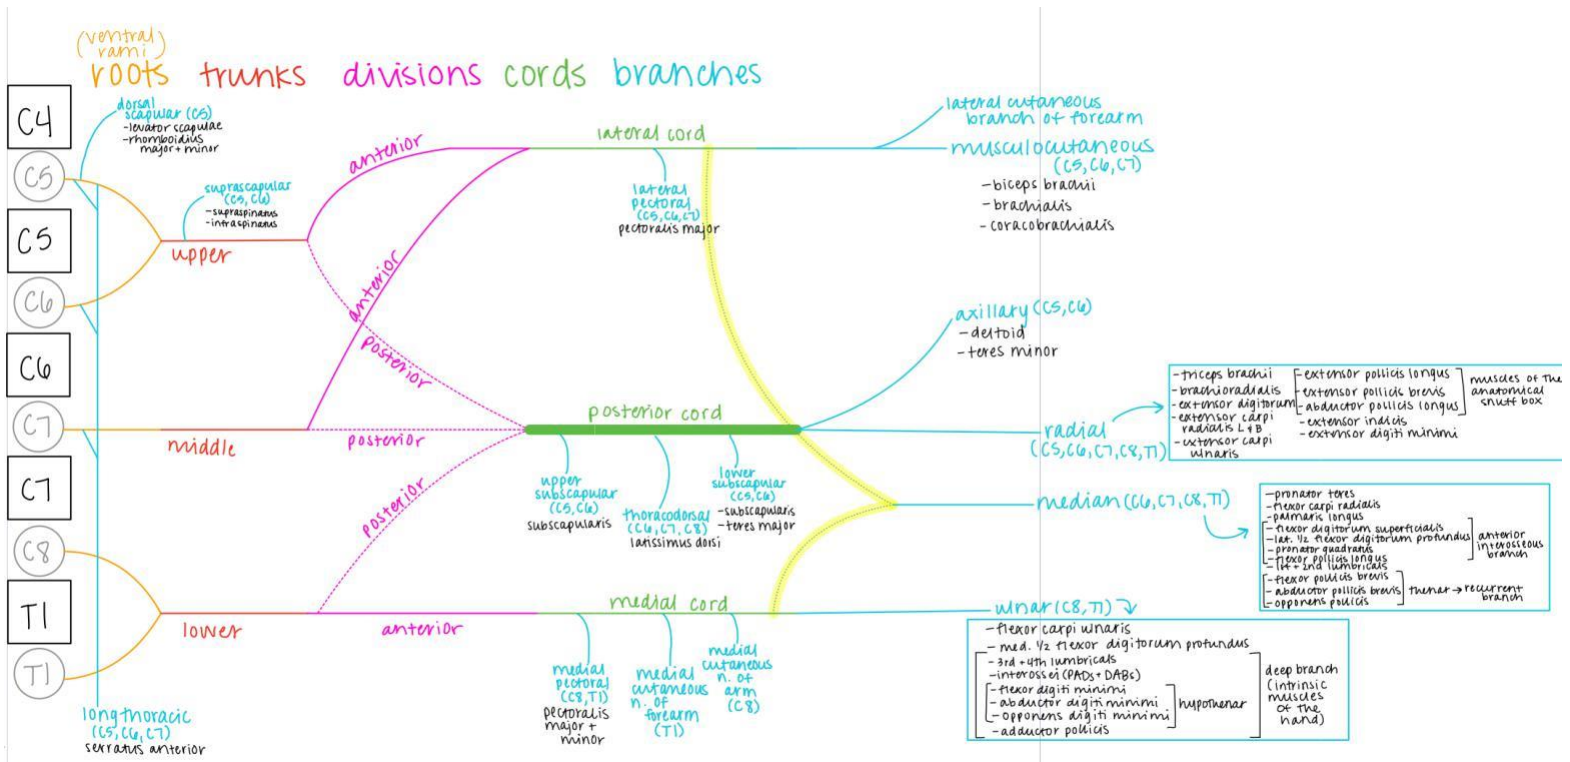 (ventral
rami)
roots trunks divisions cords branches
C4
dorsal
scapular (C5)
-levator scapulae
-rhomboidius
major + minor
C5
suprascapular
(C5, C6)
-supraspinatus
-infraspinatus
C5
upper
C6
C6
C7
middle
C7
C8
T1
lower
T1
long thoracic
(C5, C6, C7)
serratus anterior
anterior
anterior
posterior
posterior
posterior
anterior
lateral cord
lateral
pectoral
(C5, C6, C7)
pectoralis major
posterior cord
upper
subscapular
(C5, C6)
subscapularis
thoracodorsal
(C6, C7, C8)
latissimus dorsi
lower
subscapular
(C5, C6)
-subscapularis
-teres major
medial cord
medial
pectoral
(C8, T1)
pectoralis
major +
minor
medial
cutaneous
n. of
forearm
(T1)
medial
cutaneous
n. of
arm
(C8)
lateral cutaneous
branch of forearm
musculocutaneous
(C5, C6, C7)
-biceps brachii
-brachialis
-coracobrachialis
axillary (C5, C6)
-deltoid
-teres minor
radial
(C5, C6, C7, C8, T1)
-triceps brachii
-brachioradialis
-extensor digitorum
-extensor carpi
radialis L + B
-extensor carpi
ulnaris
-extensor pollicis longus
-extensor pollicis brevis
-abductor pollicis longus
-extensor indicis
-extensor digiti minimi
muscles of the
anatomical
snuff box
median (C6, C7, C8, T1)
-pronator teres
-flexor carpi radialis
-palmaris longus
-flexor digitorum superficialis
-lat. 1/2 flexor digitorum profundus
-pronator quadratus
-flexor pollicis longus
-1st + 2nd lumbricals
-flexor pollicis brevis
-abductor pollicis brevis
-opponens pollicis
anterior
interosseous
branch
thenar → recurrent
branch
ulnar (C8, T1)
-flexor carpi ulnaris
-med. 1/2 flexor digitorum profundus
-3rd + 4th lumbricals
-interossei (PADs + DABs)
-flexor digiti minimi
-abductor digiti minimi
-opponens digiti minimi
-adductor pollicis
hypothenar
deep branch
(intrinsic
muscles
of the
hand)